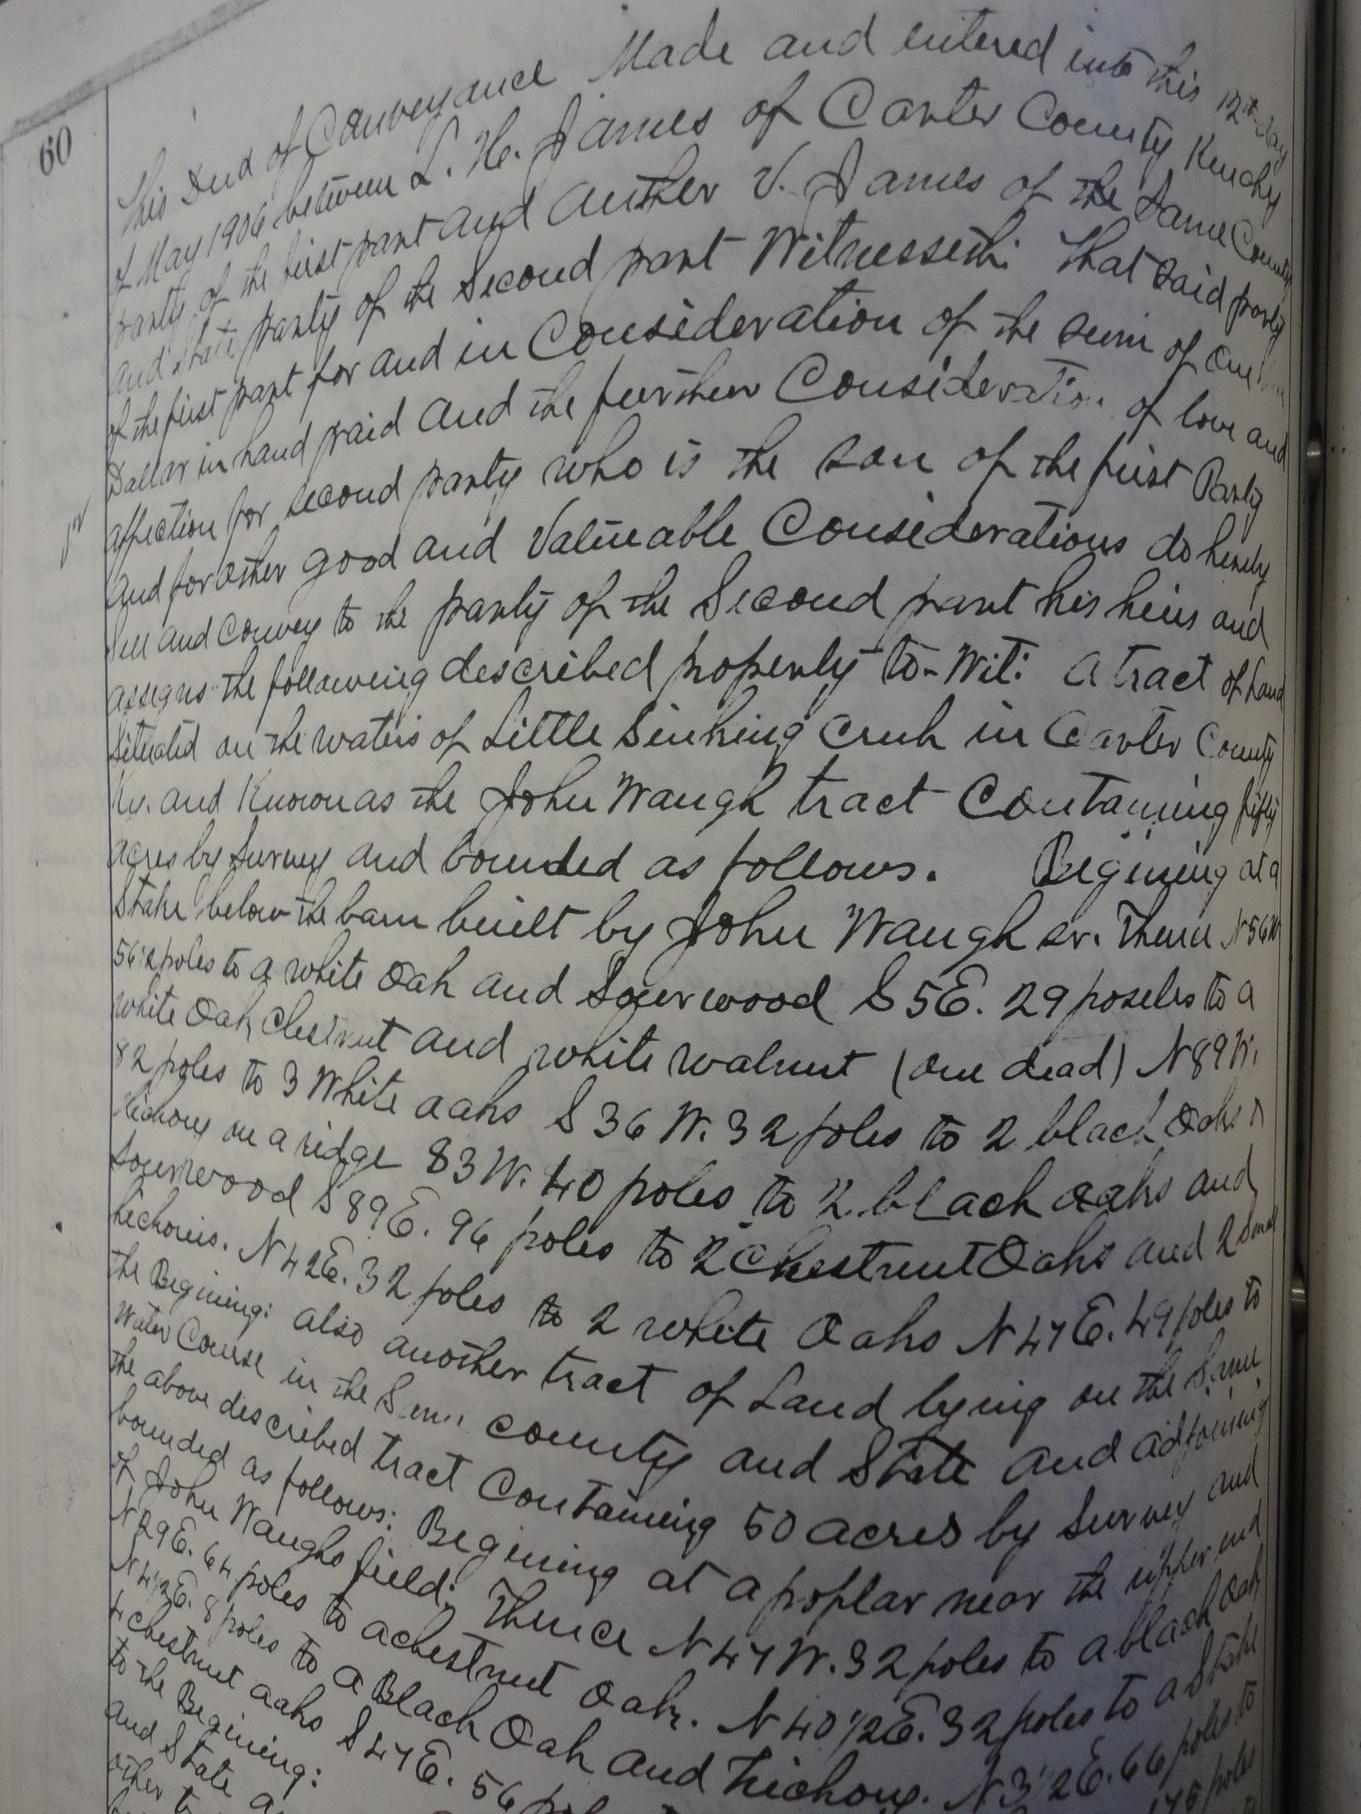 60
This Deed of Conveyance Made and entered into this 12th day
of May 1906 between L. H. James of Carter County Kenchy
party of the first part and Auther V. James of the Same County
and State party of the Second part Witnesseth: That said party
of the first part for and in Consideration of the sum of one
Dollar in hand paid and the further Consideration of love and
affection for second party who is the son of the first Party
and for other good and Valuable Considerations do hereby
Sell and Convey to the party of the Second part his heirs and
assigns the following described property to-Wit: A tract of Land
Situated on the waters of Little Sinking Creek in Carter County
Ky. and Known as the John Waugh tract Containing fifty
acres by Survey and bounded as follows. Begining at a
Stake below the barn built by John Waugh sr. Thence N 56 W
56 1/2 poles to a white Oak and Sourwood S 5 E. 29 poseles to a
white Oak Chestnut and white walnut (one dead) N 89 W.
82 poles to 3 White oaks S 36 W. 32 poles to 2 black Oaks &
Hickory on a ridge 83 W. 40 poles to 2 black oaks and
Sourwood S 89 E. 96 poles to 2 Chestnut Oaks and 2 Small
hickories. N 42 E. 32 poles to 2 white Oaks N 47 E. 49 poles to
the Begining: also another tract of Land lying on the Same
Water Course in the Same county and State and adjoining
the above described tract Containing 50 acres by Survey and
bounded as follows: Begining at a poplar near the upper end
of John Waughs field; Thence N 47 W. 32 poles to a black oak
N 29 E. 64 poles to a chestnut Oak. N 40 1/2 E. 32 poles to a Stake
N 4 1/2 E. 8 poles to a Black Oak and Hickory. N 3 1/2 E. 66 poles to
4 chestnut oaks S 47 E. 56 poles
to the Begining:
and State
other